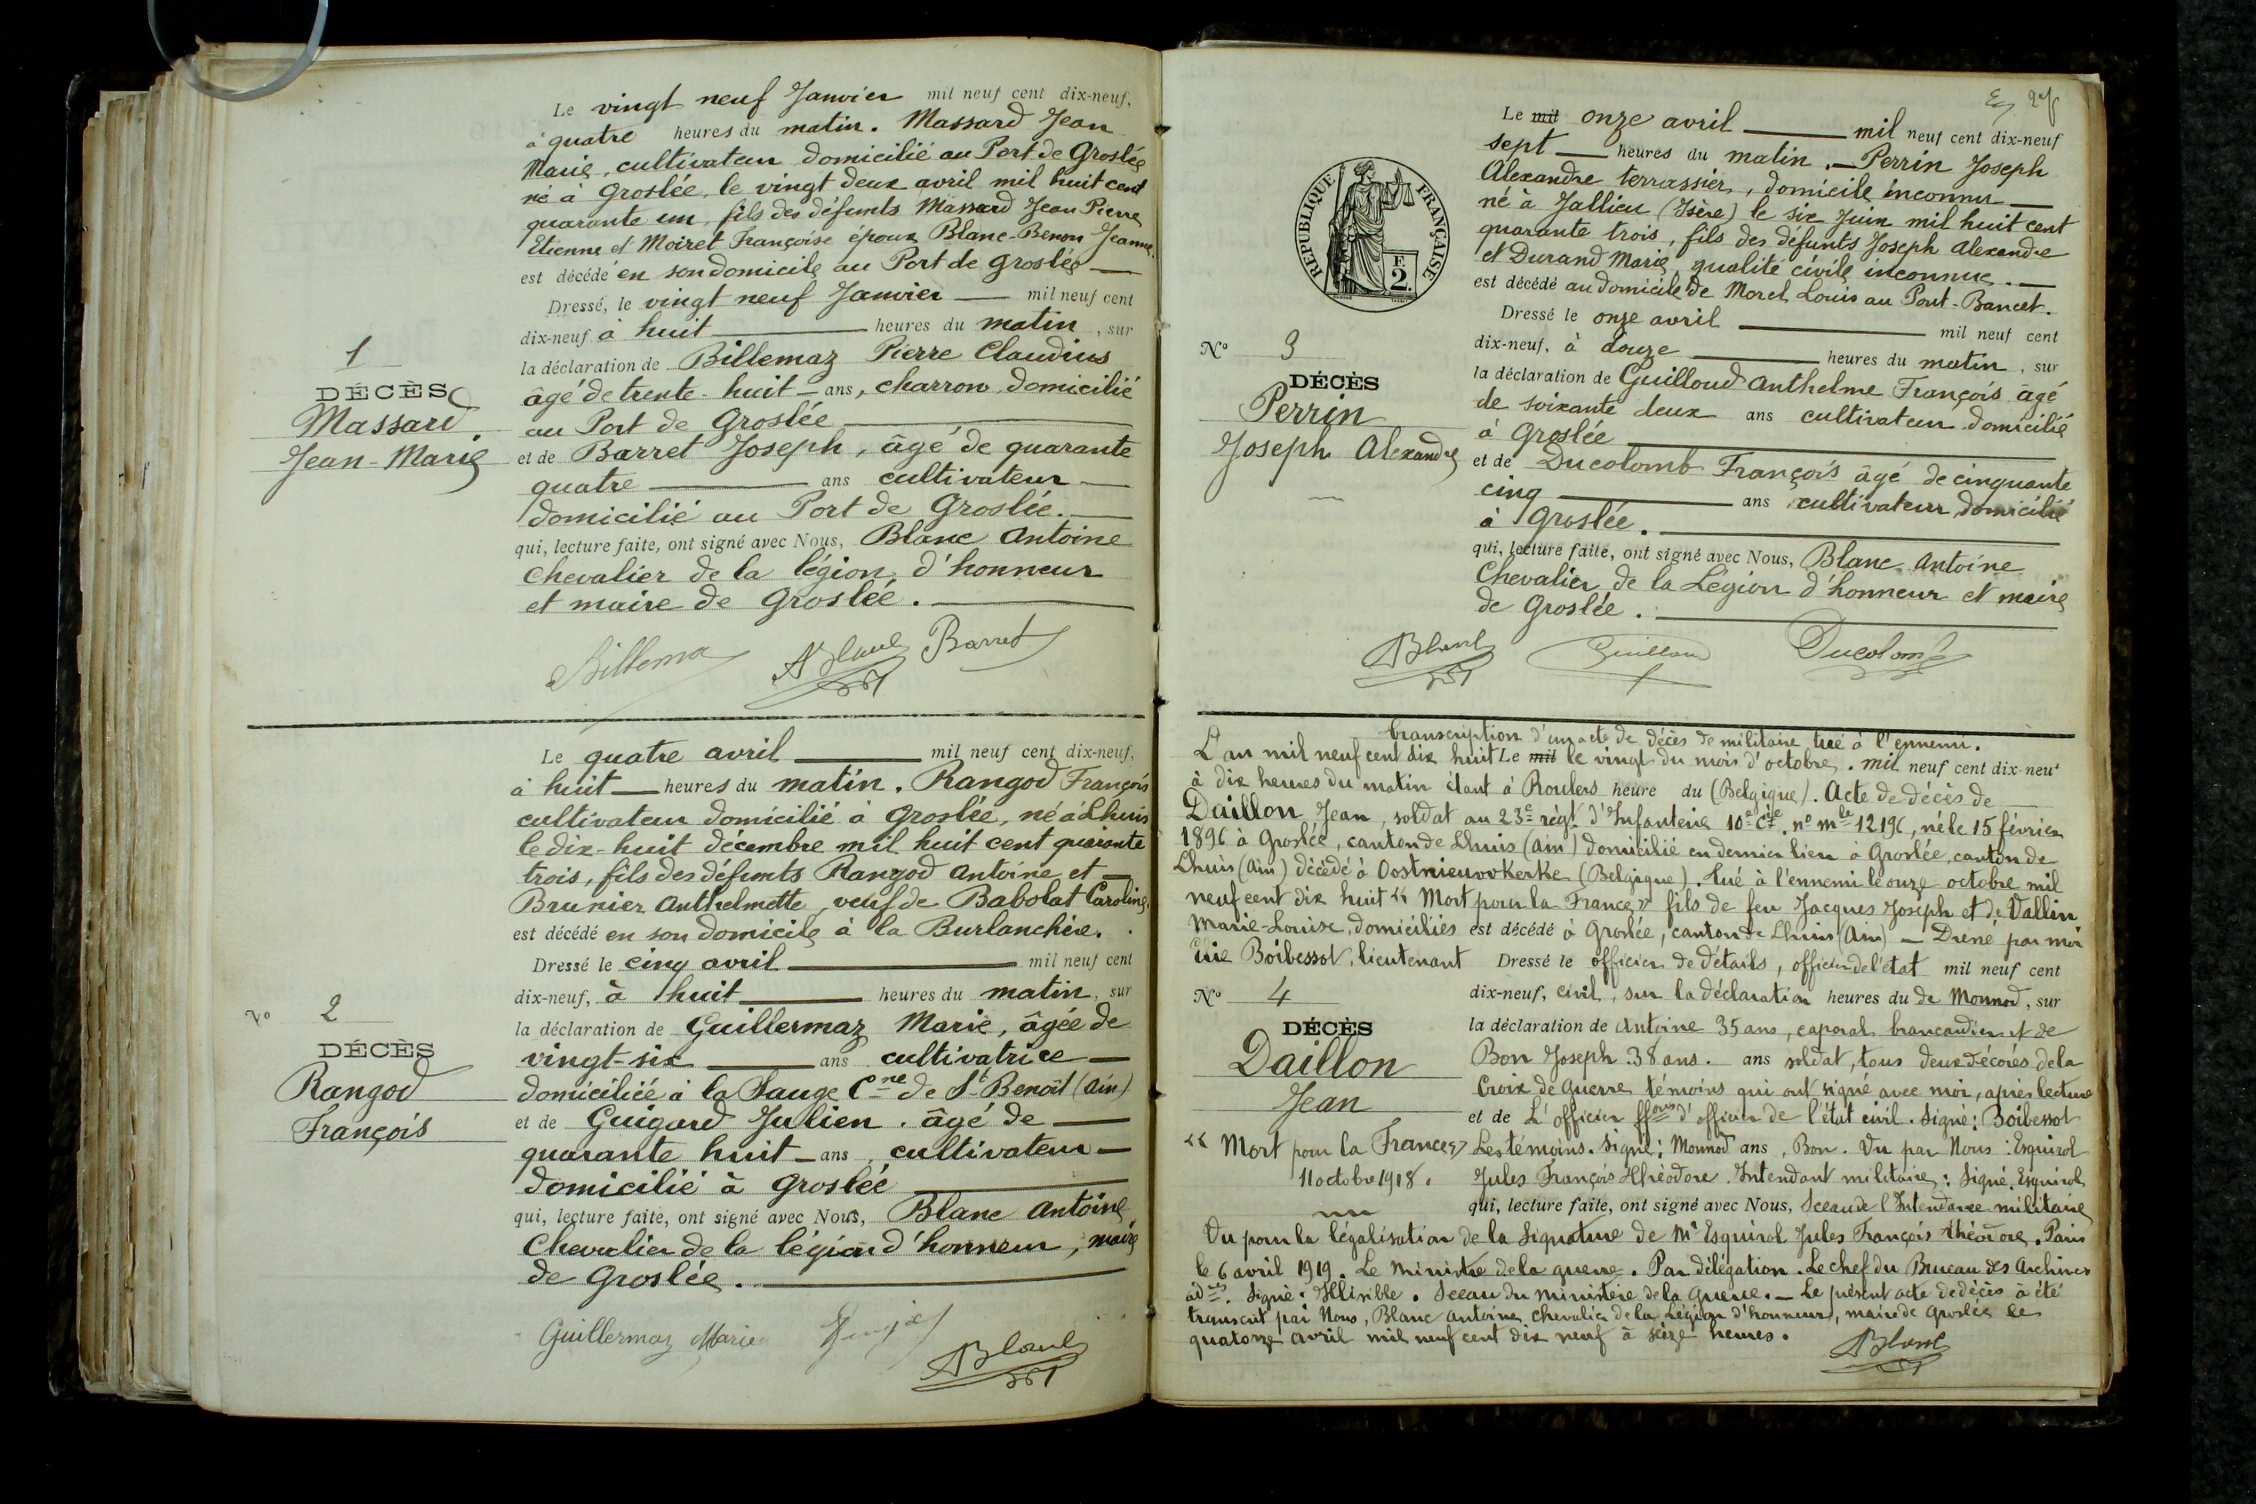 Le vingt neuf Janvier mil neuf cent dix-neuf,
à quatre heures du matin. Massard Jean
Marie, cultivateur domicilié au Port de Groslée
né à Groslée, le vingt deux avril mil huit cent
quarante un, fils des défunts Massard Jean Pierre
Etienne et Moiret Françoise époux Blanc-Benon Jeanne.
est décédé en son domicile au Port de Groslée
Dressé, le vingt neuf Janvier mil neuf cent
dix-neuf à huit heures du matin, sur
la déclaration de Billemaz Pierre Claudius
âgé de trente-huit ans, charron domicilié
au Port de Groslée
et de Barret Joseph, âgé de quarante
quatre ans cultivateur
domicilié au Port de Groslée.
qui, lecture faite, ont signé avec Nous, Blanc Antoine
Chevalier de la légion d'honneur
et maire de Groslée.
1
DÉCÈS
Massard
Jean-Marie
Billema ABlanc Barret
Le quatre avril mil neuf cent dix-neuf,
à huit heures du matin. Rangod François
cultivateur domicilié à Groslée, né à Lhuis
le dix-huit décembre mil huit cent quarante
trois, fils des défunts Rangod Antoine et
Brunier Anthelmette, veuf de Babolat Caroline.
est décédé en son domicile à la Burlanchère.
Dressé le cinq avril mil neuf cent
dix-neuf, à huit heures du matin, sur
la déclaration de Guillermaz Marie, âgée de
vingt-six ans cultivatrice
domiciliée à la Sauge Cne de St Benoît (Ain)
et de Guigard Julien. âgé de
quarante huit ans, cultivateur
domicilié à Groslée
qui, lecture faite, ont signé avec Nous, Blanc Antoine
Chevalier de la légion d'honneur, maire
de Groslée.
No 2
DÉCÈS
Rangod
François
Guillermaz Marie ABlanc
RÉPUBLIQUE FRANÇAISE
F.
2.
Le mil onze avril mil neuf cent dix-neuf
sept heures du matin. Perrin Joseph
Alexandre terrassier, domicile inconnu
né à Jallieu (Isère) le six Juin mil huit cent
quarante trois, fils des défunts Joseph Alexandre
et Durand Marie, qualité civile inconnue.
est décédé au domicile de Morel Louis au Pont-Bancet.
Dressé le onze avril mil neuf cent
dix-neuf, à douze heures du matin, sur
la déclaration de Guilloud Anthelme François âgé
de soixante deux ans cultivateur domicilié
à Groslée
et de Ducolomb François âgé de cinquante
cinq ans cultivateur domicilié
à Groslée.
qui, lecture faite, ont signé avec Nous, Blanc Antoine
Chevalier de la Légion d'honneur et maire
de Groslée.
No 3
DÉCÈS
Perrin
Joseph Alexandre
ABlanc Guilloud Ducolomb
transcription d'un acte de décès de militaire tué à l'ennemi.
L'an mil neuf cent dix huit Le mil le vingt du mois d'octobre. mil neuf cent dix-neuf
à dix heures du matin étant à Roulers heure du (Belgique). Acte de décès de
Daillon Jean, soldat au 23e régt. d'Infanterie 10e Cie. no mle 12196, né le 15 février
1896 à Groslée, canton de Lhuis (Ain) domicilié en dernier lieu à Groslée, canton de
Lhuis (Ain) décédé à Oostnieuwkerke (Belgique). tué à l'ennemi le onze octobre mil
neuf cent dix huit "Mort pour la France" fils de feu Jacques Joseph et de Vallin
Marie-Louise, domiciliés est décédé à Groslée, canton de Lhuis (Ain) — Dressé par moi
Boibessot, lieutenant Dressé le officier de détails, officier de l'état mil neuf cent
dix-neuf, civil, sur la déclaration heures du de Monnod, sur
la déclaration de Antoine 35 ans, caporal brancardier et de
Bon Joseph 38 ans. ans soldat, tous deux décorés de la
Croix de Guerre témoins qui ont signé avec moi, après lecture
et de L'officier ffons d'officier de l'état civil. Signé: Boibessot
Les témoins. Signé: Monnod ans, Bon. Vu par Nous: Esquirol
Jules François Théodore. Intendant militaire: Signé. Esquirol
qui, lecture faite, ont signé avec Nous, Sceau de l'Intendance militaire
Vu pour la légalisation de la signature de Mr Esquirol Jules François Théodore. Paris
le 6 avril 1919. Le Ministre de la guerre. Par délégation. Le chef du Bureau des Archives
adves. Signé: Illisible. Sceau du ministère de la Guerre. — Le présent acte de décès à été
transcrit par Nous, Blanc Antoine chevalier de la Légion d'honneur, maire de Groslée le
quatorze avril mil neuf cent dix neuf à seize heures.
ABlanc
No 4
DÉCÈS
Daillon
Jean
"Mort pour la France"
11 octobre 1918.